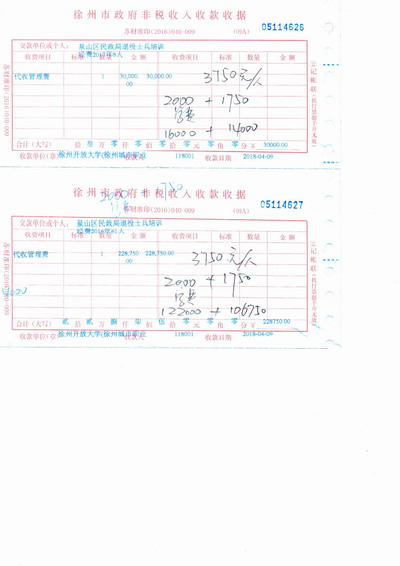 徐州市政府非税收入收款收据
05114626
苏财准印(2016)040-009 (09A)
交款单位或个人: 泉山区民政局退役士兵培训
经费2017年8人
收费项目 标准 数量 金额 收费项目 标准 数量 金额
代收管理费 1 30,000.00 30,000.00
3750元/人
2000 + 1750
学费
16000 + 14000
合计(大写) 拾 叁 万 零 仟 零 佰 零 拾 零 元 零 角 零 分 ¥ 30000.00
收款单位(章) 徐州开放大学(徐州城市职业 118001 收款日期 2018-04-09
③记帐联
苏财准印(2016)040-009
徐州市政府非税收入收款收据
1750
05114627
苏财准印(2016)040-009 (09A)
交款单位或个人: 泉山区民政局退役士兵培训
经费2016年61人
收费项目 标准 数量 金额 收费项目 标准 数量 金额
代收管理费 1 228,750.00 228,750.00
3750元/人
2000 + 1750
学费
122000 + 106750
合计(大写) 贰 拾 贰 万 捌 仟 柒 佰 伍 拾 零 元 零 角 零 分 ¥ 228750.00
收款单位(章) 徐州开放大学(徐州城市职业 收款人 118001 收款日期 2018-04-09
③记帐联